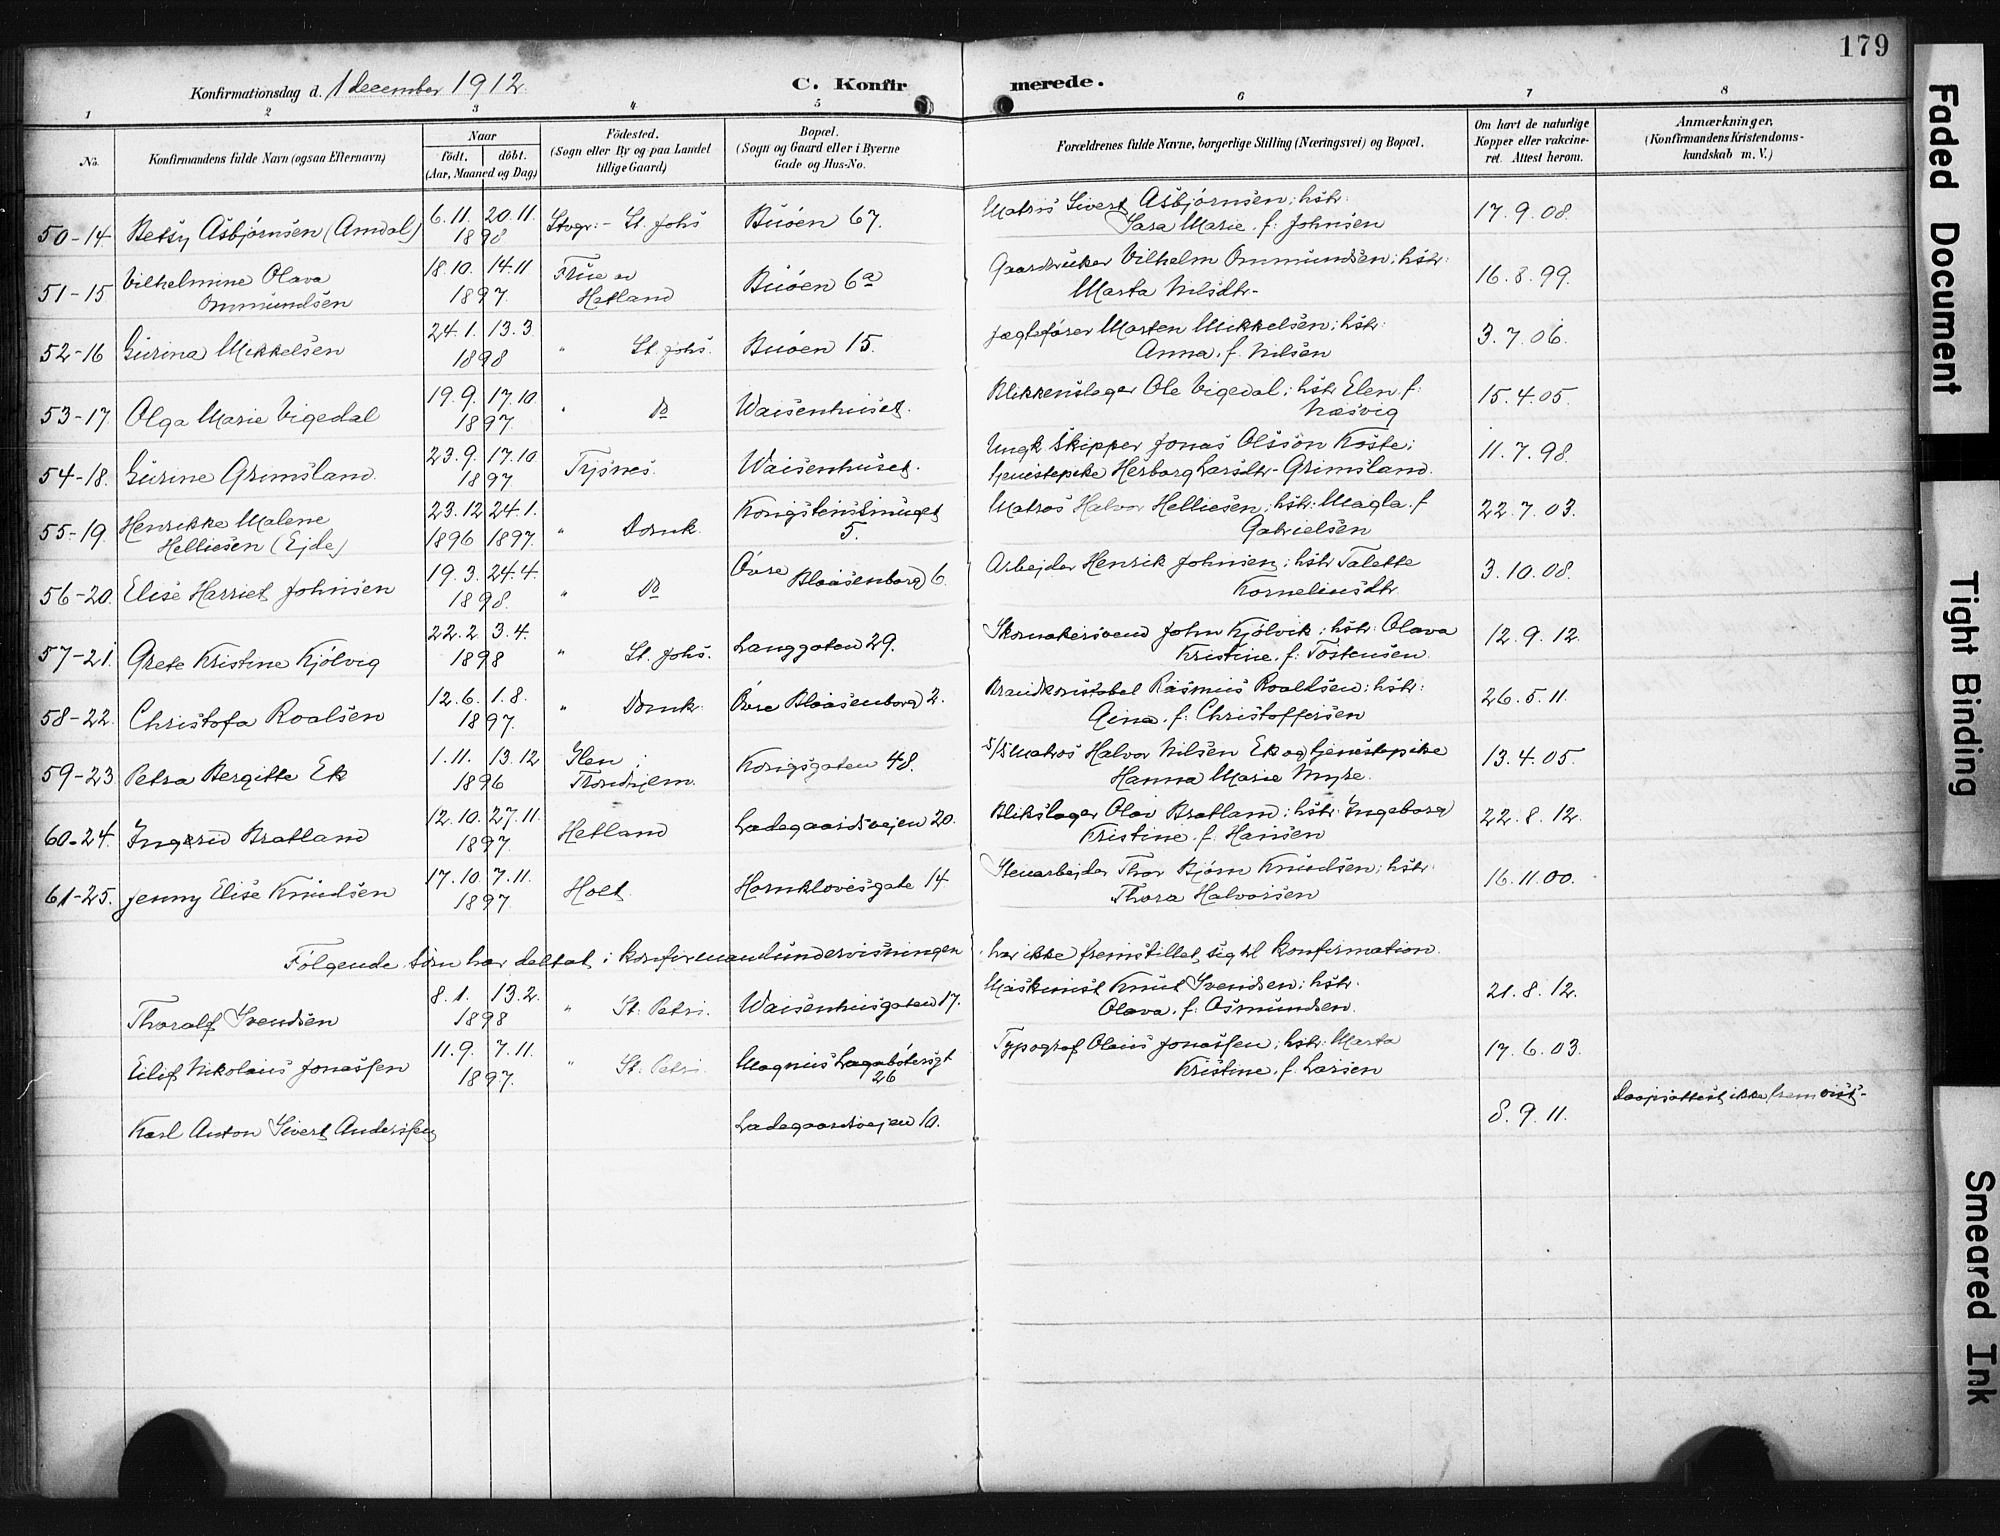 179
Konfirmationsdag d. 1 december 1912
C. Konfirmerede.
1 2 3 4 5 6 7 8
No.
Konfirmandens fulde Navn (ogsaa Efternavn)
Naar
födt. döbt.
(Aar, Maaned og Dag)
Födested.
(Sogn eller By og paa Landet
tillige Gaard)
Bopæl.
(Sogn og Gaard eller i Byerne
Gade og Hus-No.
Forældrenes fulde Navne, borgerlige Stilling (Næringsvei) og Bopæl.
Om havt de naturlige
Kopper eller vakcine-
ret. Attest herom.
Anmærkninger,
(Konfirmandens Kristendoms-
kundskab m. V.)
50-14 Betsy Asbjørnsen (Amdal) 6.11. 20.11. 1898 Stvgr:- St. Johs Buøen 67. Matros Sivert Asbjørnsen; hstr: Sara Marie f. Johnsen 17.9.08.
51-15 Vilhelmine Olava Ommundsen 18.10. 14.11 1897. Frue av Hetland Buøen 6a Gaardbruker Vilhelm Ommundsen; hstr: Marta Nilsdtr- 16.8.99.
52-16 Gurina Mikkelsen 24.1. 13.3. 1898 " St. Johs. Buøen 15. Jagtefører Morten Mikkelsen; hstr: Anna. f. Nilsen 3.7.06.
53-17. Olga Marie Vigedal 19.9. 17.10 1897 " Do Waisenhuset. Blikkenslager Ole Vigedal; hstr Elen f. Næsvig 15.4.05.
54-18. Gurine Grimsland. 23.9. 17.10 1897 Tysnes. Waisenhuset. Ungk Skipper Jonas Olsson Koste; tjenestepike Herborg Larsdtr- Grimsland. 11.7.98.
55-19. Henrikke Malene Helliesen (Ejde) 23.12 24.1. 1896 1897. " Domk. Kongstensmuget 5. Matros Halvor Helliesen; hstr: Magla. f Gabrielsen 22.7.03.
56-20. Elise Harriet Johnsen 19.3. 24.4. 1898. " Do Øvre Blaasenborg 6. Arbejder Henrik Johnsen; hstr Talette Korneliusdtr. 3.10.08.
57-21. Grete Kristine Kjølvig 22.2 3.4. 1898 " St. Johs. Langgaten 29. Skomakersvend John Kjølvik; hstr: Olava Kristine. f. Tostensen. 12.9.12.
58-22. Christofa Roalsen 12.6. 1.8. 1897. " Domk. Øvre Blaasenborg 2. Brandkonstabel Rasmus Roaldsen; hstr: Gina. f. Christoffersen 26.5.11.
59-23 Petra Bergitte Ek 1.11. 13.12 1896 Ilen i Trondhjem. Kongsgaten 48. S/S Matros Halvor Nilsen Ek og tjenestepike Hanna Marie Myre. 13.4.05.
60-24. Ingerid Bratland 12.10. 27.11. 1897. Hetland Ladegaardsvejen 20. Blikslager Olav Bratland; hstr: Ingeborg Kristine. f. Hansen 22.8.12.
61-25. Jenny Elise Knudsen 17.10. 7.11. 1897 Holt. Harniklovesgate 14 Stenarbejder Thor Bjørn Knudsen; hstr: Thora Halvorsen 16.11.00.
Følgende børn har deltat i konfirmandundervisningen har ikke fremstillet sig til konfirmation.
Thoralf Svendsen 8.1. 13.2. 1898 " St: Petri. Waisenhusgaten 17. Maskinist Knut Svendsen; hstr. Olava. f. Osmundsen. 21.8.12.
Eilif Nikolaus Jonassen 11.9. 7.11. 1897. " St: Petri. Magnus Lagabøtersgt 26 Typograf Olaus Jonassen; hstr: Marta Kristine. f. Larsen 17.6.03.
Karl Anton Sivert Anderssen Ladegaardsvejen 10. 8.9.11. Daapsattest ikke fremvist.-
Faded Document
Tight Binding
Smeared Ink